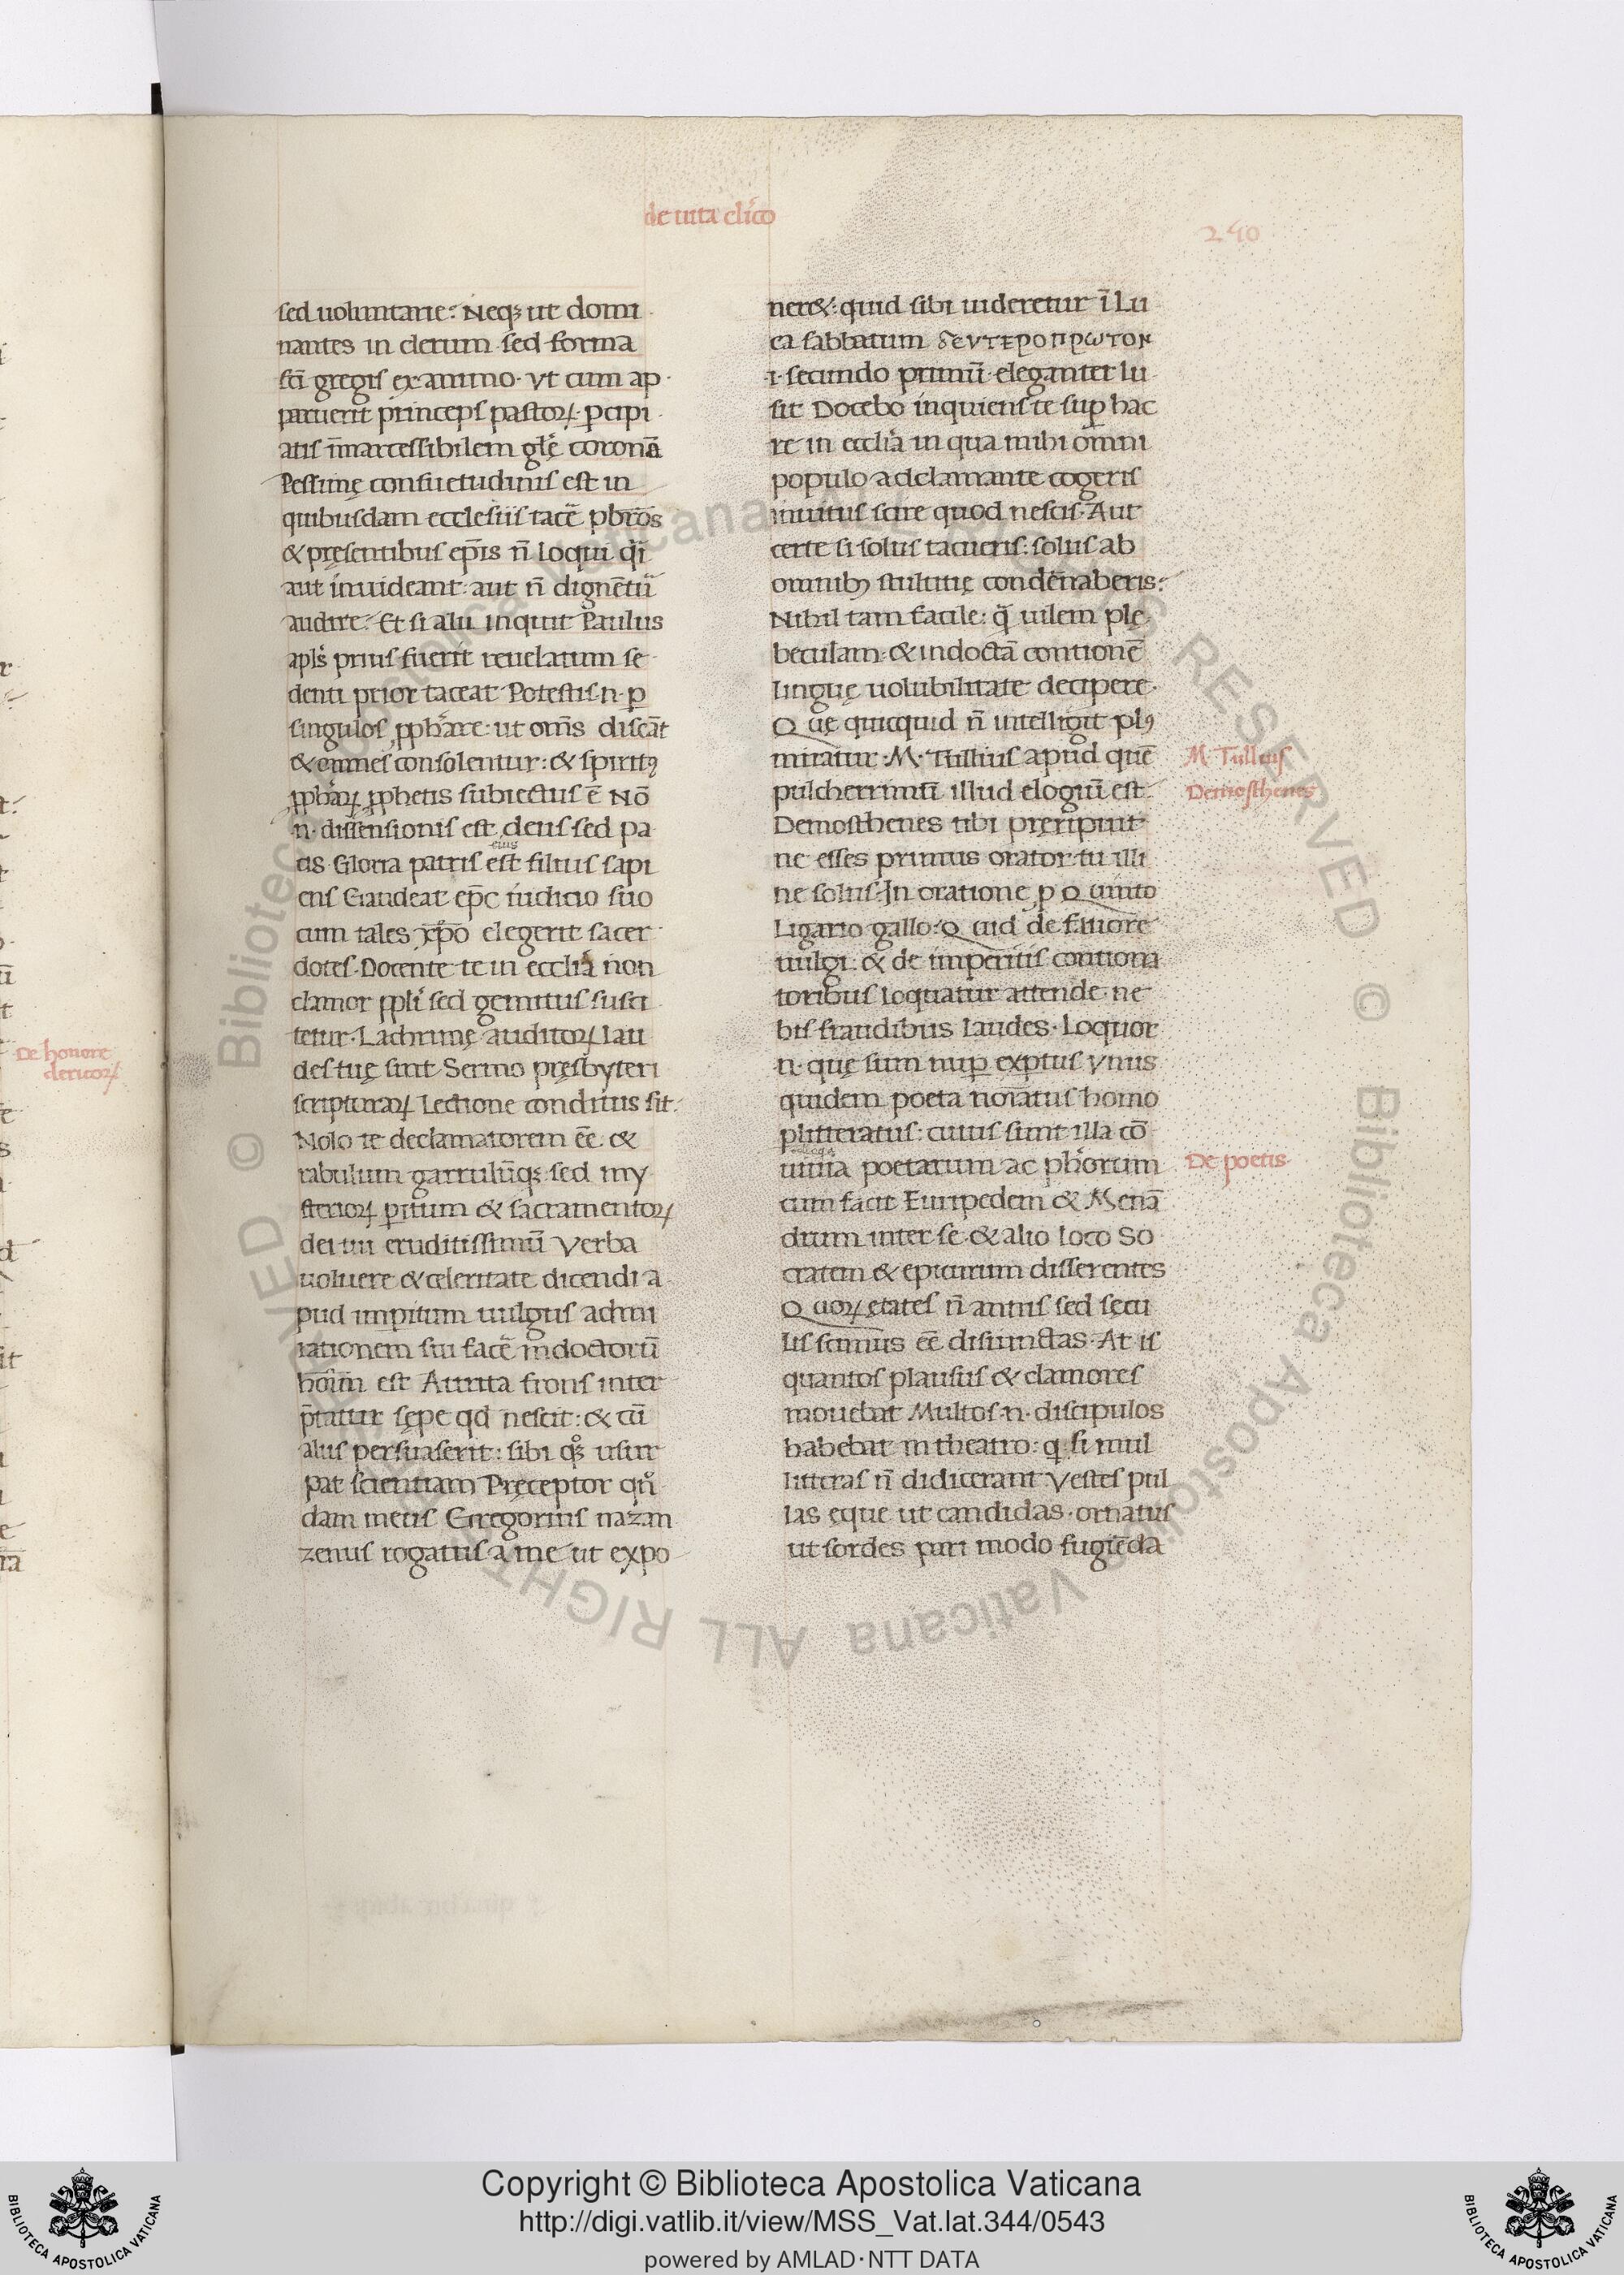 de uita cl̄ico
240
sed uoluntarie: Neqꝫ ut domi
nantes in clerum sed forma
fc̄i gregis ex animo. vt cum ap
paruerit princeps pastoꝝ. ꝑcipi
atis īmarcessibilem gl̄ę coronā
Pessimę consuetudinis est in
quibusdam ecclesiis tacē pb̄ros
& pręsentibus ep̄is n̄ loqui q̄i
aut inuideant: aut n̄ dignent̄
audire. Et si alii inquit Paulus
apl̄s prius fuerit reuelatum se
denti prior taceat Potestis .n. ꝑ
singulos ꝓph̄are: ut om̄s discāt
& omnes consolentur: & spiritꝰ
ꝓph̄aꝝ ꝓphetis subiectus ē Nō
.n. dissensionis est deus sed pa
cis. Gloria patris est filius sapi
eius
ens Gaudeat ep̄c iudicio suo
cum tales xp̄o elegerit sacer
dotes. Docente te in ecclīa non
clamor ppl̄i sed gemitus susci
tetur. Lachrimę auditoꝝ lau
des tuę sint Sermo pręsbyteri
scripturaꝝ lectione conditus sit.
Nolo te declamatorem ēe. &
rabulum garrulūqꝫ. sed my
sterioꝝ ꝑitum & sacramentoꝝ
dei tui eruditissimū Verba
uoluere & celeritate dicendi a
pud imꝑitum uulgus admi
rationem sui facē indoctorū
hoīm est Attrita frons inter
p̄tatur sępe qd nescit: & cū
aliis persuaserit: sibi qꝫ usur
pat scientiam Pręceptor qn̄
dam meus Gregorius nazan
zenus rogatus a me ut expo
neret: quid sibi uideretur ī Lu
ca sabbatum δευτεροπρωτον
.i. secundo primū. eleganter lu
sit Docebo inquiens te suꝑ hac
re in ecclīa in qua mihi omni
populo adclamante cogeris
inuitus scire quod nescis. Aut
certe si solus tacueris: solus ab
omnibꝫ stultitię condēnaberis.
Nihil tam facile: q̄ uilem ple
beculam. & indoctā contionē
linguę uolubilitate decipere.
Quę quicquid n̄ intelligit plꝰ
miratur. M. Tullius apud quē
pulcherrimū illud elogiū est.
Demosthenes tibi pręripuit
ne esses primus orator. tu illi
ne solus. In oratione ꝓ Quinto
Ligario gallo: Quid de fauore
uulgi: & de imperitis contiona
toribus loquatur attende. ne
his fraudibus laudes. Loquor
.n. quę sum nuꝑ exꝑtus Vnus
quidem poeta nom̄atus homo
ꝑlitteratus: cuius sunt illa cō
loqa
uiuia poetarum ac ph̄orum
cum facit Euripedem & Menā
drum inter se. & alio loco So
cratem & epicurum disserentes
Quoꝝ ętates n̄ annis sed sęcu
lis scimus ēe disiunctas. At is
quantos plausus & clamores
mouebat Multos .n. discipulos
habebat in theatro: q̄ simul
litteras n̄ didicerant Vestes pul
las ęque ut candidas. ornatus
ut sordes pari modo fugiēda
M. Tullius
Demosthenes
De poetis
De honore
clericoꝝ
Copyright © Biblioteca Apostolica Vaticana
http://digi.vatlib.it/view/MSS_Vat.lat.344/0543
powered by AMLAD·NTT DATA
BIBLIOTECA APOSTOLICA VATICANA
BIBLIOTECA APOSTOLICA VATICANA
© Biblioteca Apostolica Vaticana ALL RIGHTS RESERVED © Biblioteca Apostolica Vaticana ALL RIGHTS RESERVED